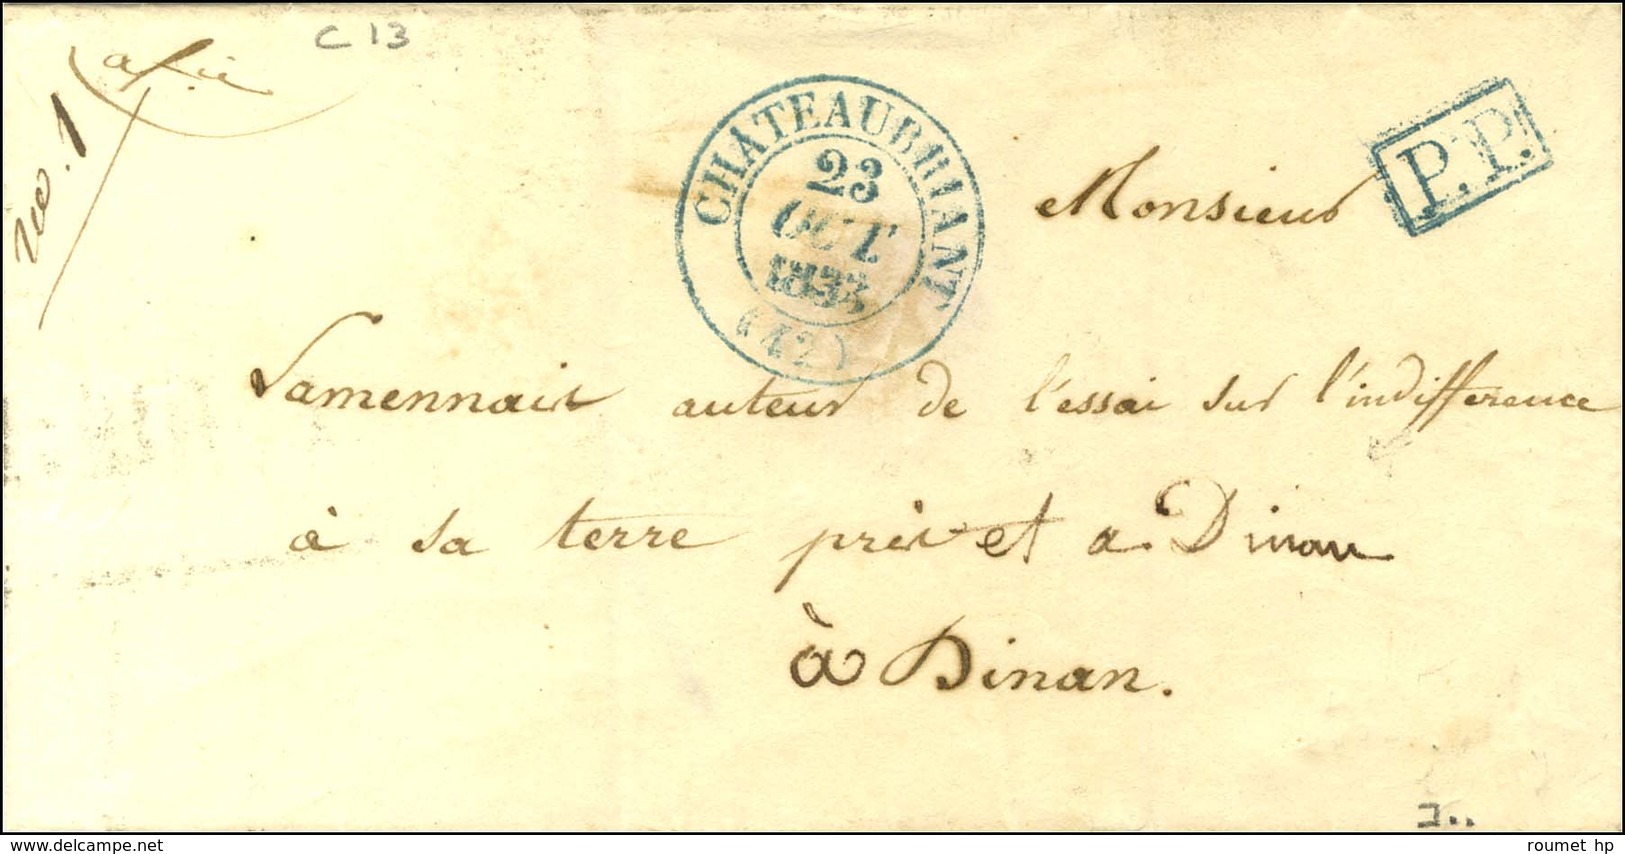 C 13
no. 1
CHATEAUBRIANT
23
OCT.
1833
(42)
P.P.
Monsieur
Lamennais auteur de l'essai sur l'indifference
à sa terre près et a Dinan
à Dinan.
www.delcampe.net
roumet hp